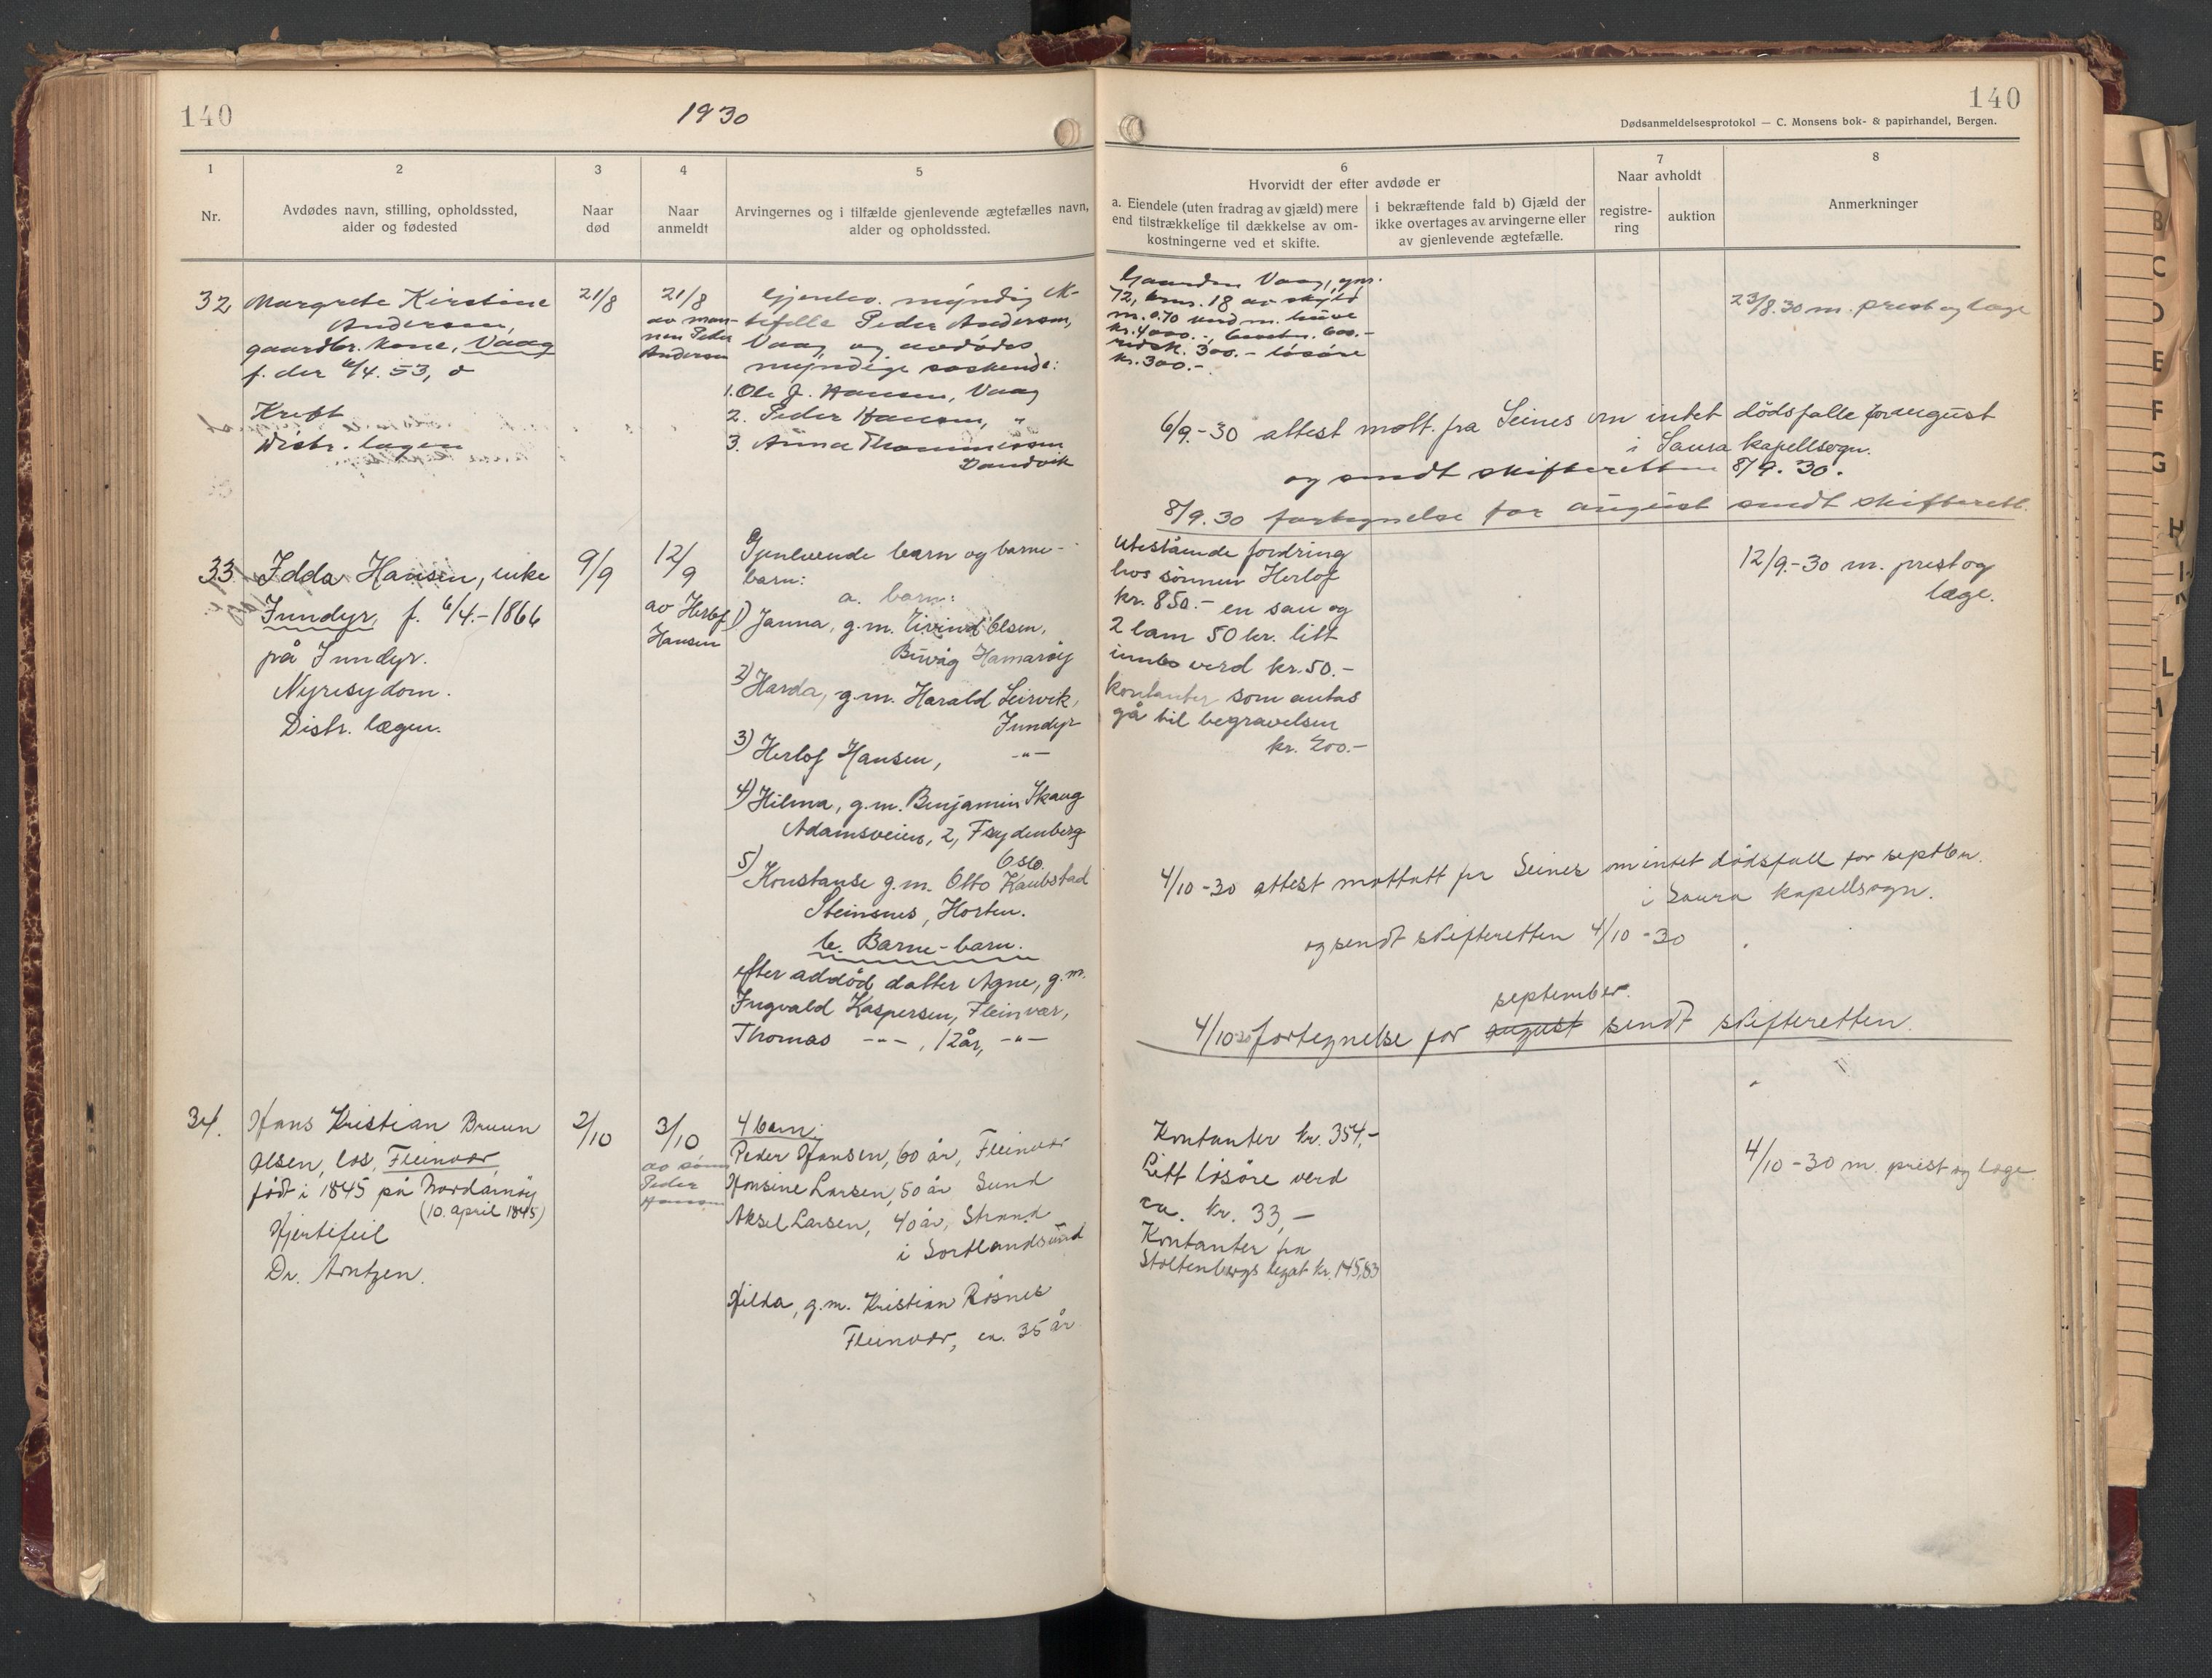 140
1930
140
Dødsanmeldelsesprotokol — C. Monsens bok- & papirhandel, Bergen.
1
Nr.
2
Avdødes navn, stilling, opholdssted,
alder og fødested
3
Naar
død
4
Naar
anmeldt
5
Arvingernes og i tilfælde gjenlevende ægtefælles navn,
alder og opholdssted.
6
Hvorvidt der efter avdøde er
a. Eiendele (uten fradrag av gjæld) mere
end tilstrækkelige til dækkelse av om-
kostningerne ved et skifte.
i bekræftende fald b) Gjæld der
ikke overtages av arvingerne eller
av gjenlevende ægtefælle.
7
Naar avholdt
registre-
ring
auktion
8
Anmerkninger
32
Margrete Kirstine
Andersen,
gaardbr. kone, Vaag
f. der 6/4. 53,
Kreft
Distr. lægen
21/8
21/8
av man-
nen Peder
Andersen
Gjenlev. myndig ek-
tefelle Peder Andersen,
Vaag, og avdødes
myndige søskende:
1. Ole J. Hansen, Vaag
2. Peder Hansen, "
3. Anna Thommessen
Sandvik
Gaarden Vaag, gnr.
72, bnr. 18 av skyld
m. 0.70 verd m. huse
kr. 4000.-, 600.-
redsk. 300.- løsøre
kr. 300.-
23/8.30 m. prest og læge
6/9.-30 attest mott. fra Seines om intet dödsfalle for august
i Saura kapellsogn.
og sendt skifteretten 8/9. 30.
8/9.30 fortegnelse for august sendt skifterett.
33.
Idda Hansen, enke
Inndyr, f. 6/4.-1866
på Inndyr.
Nyresydom.
Distr. lægen.
9/9
12/9
av Herlof
Hansen
Gjenlevende barn og barne-
barn:
a. barn:
1) Janna, g.m. Eivind Olsen,
Buvåg Hamarøy
2) Harda, g.m. Harald Leirvik,
Inndyr
3) Herlof Hansen, -"-
4) Hilma, g.m. Benjamin Skaug
Adamsveien, 2, Frydenberg
Oslo.
5) Konstanse g.m. Otto Kaubstad
Steinsnes, Horten.
b. Barne-barn.
efter addöd datter Agne, g.m.
Ingvald Kaspersen, Fleinvær,
Thomas -"-, 12 år, -"-
Utestående fordring
hos sønnen Herlof
kr. 850.- en sau og
2 lam 50 kr. litt
innbo verd kr. 50.-
kontanter som antas
gå til begravelsen
kr. 200.-
12/9.-30 m. prest og
læge.
4/10-30 attest mottatt fra Seines om intet dødsfall for septbr.
i Saura kapellsogn.
og sendt skifteretten 4/10-30
september.
4/10-30 fortegnelse for august sendt skifteretten.
34.
Hans Kristian Bruun
Olsen, los, Fleinvær,
født i 1845 på Nordarnøy
(10. april 1845)
Hjertefeil
Dr. Arntzen.
2/10
3/10
av sønn
Peder
Hansen
4 barn:
Peder Hansen, 60 år, Fleinvær
Hansine Larsen, 50 år Sund
Aksel Larsen, 40 år, Strand
i Sortlandsund
Hilda, g.m. Kristian Røsnes
Fleinvær, ca. 35 år
Kontanter kr. 354,-
Litt løsøre verd
ca. kr. 33,-
Kontanter fra
Stoltenbergs legat kr. 145,83
4/10-30 m. prest og læge